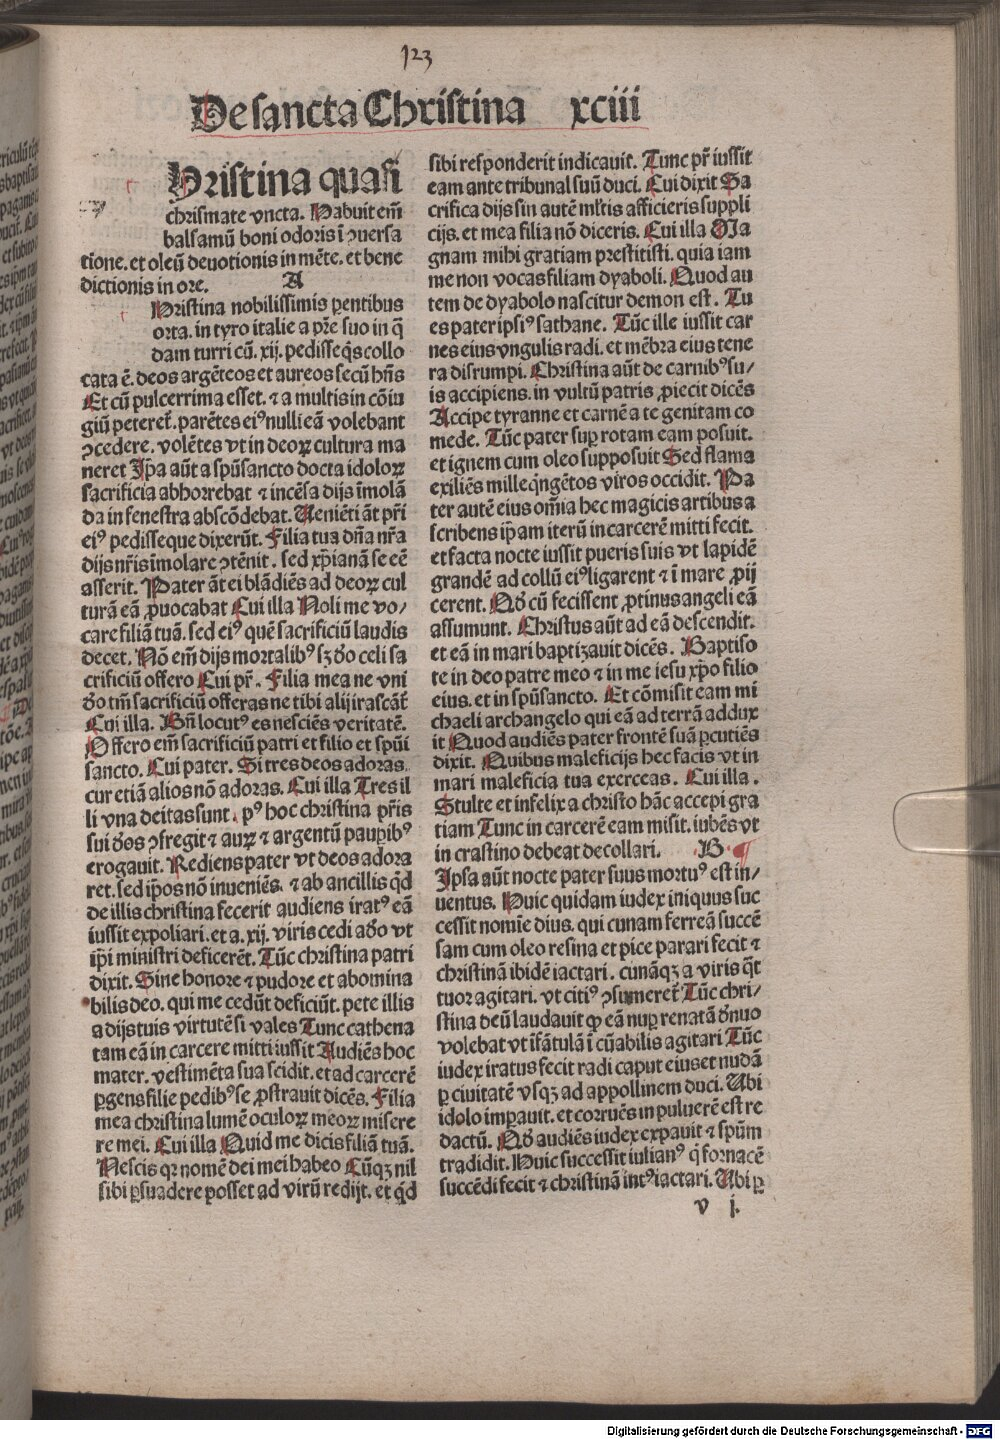 123
De sancta Christina xciii
Hristina quasi
chrismate vncta. Habuit em̄
balsamū boni odoris ī ꝯuersa
tione. et oleū deuotionis in mēte. et bene
dictionis in ore. A
Hristina nobilissimis pentibus
orta. in tyro italie a pr̄e suo in q̄
dam turri cū. xij. pedisseq̄s collo
cata ē. deos argēteos et aureos secū hn̄s
Et cū pulcerrima esset. ⁊ a multis in cōiu
giū peteret᷑. parētes eiꝰ nulli eā volebant
ꝯcedere. volētes vt in deoꝝ cultura ma
neret Ip̄a aūt a spūsancto docta idoloꝝ
sacrificia abhorrebat ⁊ incēsa dijs īmolā
da in fenestra abscōdebat. Ueniēti āt pr̄i
eiꝰ pedisseque dixerūt. Filia tua dn̄a nr̄a
dijs nr̄is īmolare ꝯtēnit. sed xp̄ianā se eē
asserit. Pater āt ei blādiēs ad deoꝝ cul
turā eā ꝓuocabat Cui illa Noli me vo/
care filiā tuā. sed eiꝰ quē sacrificiū laudis
decet. Nō em̄ dijs mortalibꝰ sꝫ deo celi sa
crificiū offero Cui pr̄. Filia mea ne vni
deo tm̄ sacrificiū offeras ne tibi alij irascāt᷑
Cui illa. Bn̄ locutꝰ es nesciēs veritatē.
Offero em̄ sacrificiū patri et filio et spūi
sancto. Cui pater. Si tres deos adoras
cur etiā alios nō adoras. Cui illa Tres il
li vna deitas sunt. pꝰ hoc christina pr̄is
sui deos ꝯfregit ⁊ auꝝ ⁊ argentū pauꝑibꝰ
erogauit. Rediens pater vt deos adora
ret. sed ip̄os nō inueniēs. ⁊ ab ancillis qd̄
de illis christina fecerit audiens iratꝰ eā
iussit expoliari. et a. xij. viris cedi adeo vt
ip̄i ministri deficerēt. Tūc christina patri
dixit. Sine honore ⁊ pudore et abomina
bilis deo. qui me cedūt deficiūt. pete illis
a dijs tuis virtutē si vales Tunc cathena
tam eā in carcere mitti iussit Audiēs hoc
mater. vestimēta sua scidit. et ad carcerē
ꝑgens filie pedibꝰ se ꝓstrauit dicēs. Filia
mea christina lumē oculoꝝ meoꝝ misere
re mei. Cui illa Quid me dicis filiā tuā.
Nescis qr nomē dei mei habeo Cūqꝫ nil
sibi ꝑsuadere posset ad virū redijt. et qd̄
sibi responderit indicauit. Tunc pr̄ iussit
eam ante tribunal suū duci. Cui dixit Sa
crifica dijs sin autē ml̄tis afficieris suppli
cijs. et mea filia nō diceris. Cui illa Ma
gnam mihi gratiam prestitisti. quia iam
me non vocas filiam dyaboli. Quod au
tem de dyabolo nascitur demon est. Tu
es pater ipsiꝰ sathane. Tūc ille iussit car
nes eius vngulis radi. et mēbra eius tene
ra disrumpi. Christina aūt de carnibꝰ su/
is accipiens. in vultū patris ꝓiecit dicēs
Accipe tyranne et carnē a te genitam co
mede. Tūc pater suꝑ rotam eam posuit.
et ignem cum oleo supposuit Sed flama
exiliēs mille qn̄gētos viros occidit. Pa
ter autē eius om̄ia hec magicis artibus a
scribens ip̄am iterū in carcerē mitti fecit.
et facta nocte iussit pueris suis vt lapidē
grandē ad collū eiꝰ ligarent ⁊ ī mare ꝓij
cerent. Qd̄ cū fecissent ꝓtinus angeli eā
assumunt. Christus aūt ad eā descendit.
et eā in mari baptizauit dicēs. Baptiso
te in deo patre meo ⁊ in me iesu xp̄o filio
eius. et in spūsancto. Et cōmisit eam mi
chaeli archangelo qui eā ad terrā addux
it Quod audiēs pater frontē suā ꝑcutiēs
dixit. Quibus maleficijs hec facis vt in
mari maleficia tua exerceas. Cui illa.
Stulte et infelix a christo hāc accepi gra
tiam Tunc in carcerē eam misit. iubēs vt
in crastino debeat decollari. B.
Ipsa aūt nocte pater suus mortuꝰ est in/
uentus. Huic quidam iudex iniquus suc
cessit nomīe dius. qui cunam ferreā succē
sam cum oleo resina et pice parari fecit ⁊
christinā ibidē iactari. cunāqꝫ a viris q̄t
tuor agitari. vt citiꝰ ꝯsumeret᷑ Tūc chri/
stina deū laudauit ꝙ eā nuꝑ renatā denuo
volebat vt īfātulā ī cūabilis agitari Tūc
iudex iratus fecit radi caput eius et nudā
ꝑ ciuitatē vsqꝫ ad appollinem duci. Ubi
idolo imꝑauit. et corruēs in puluerē est re
dactū. Qd̄ audiēs iudex expauit ⁊ spūm
tradidit. Huic successit iulianꝰ q̄ fornacē
succēdi fecit ⁊ christinā intꝰ iactari. Ubi ꝑ
v j.
Digitalisierung gefördert durch die Deutsche Forschungsgemeinschaft - DFG